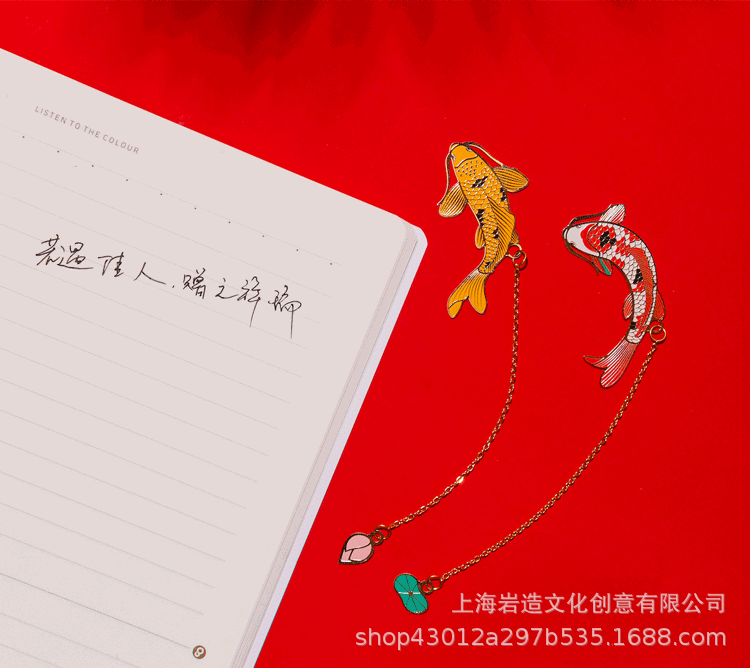 LISTEN TO THE COLOUR
若遇佳人,赠之锦鲤
上海岩造文化创意有限公司
shop43012a297b535.1688.com